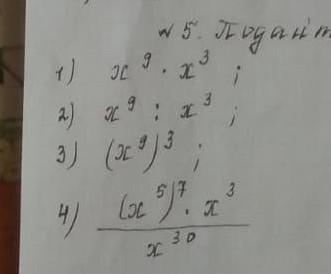 № 5. Подайт
1) x⁹ · x³ ;
2) x⁹ : x³ ;
3) (x⁹)³ ;
4) (x⁵)⁷ · x³
x³⁰